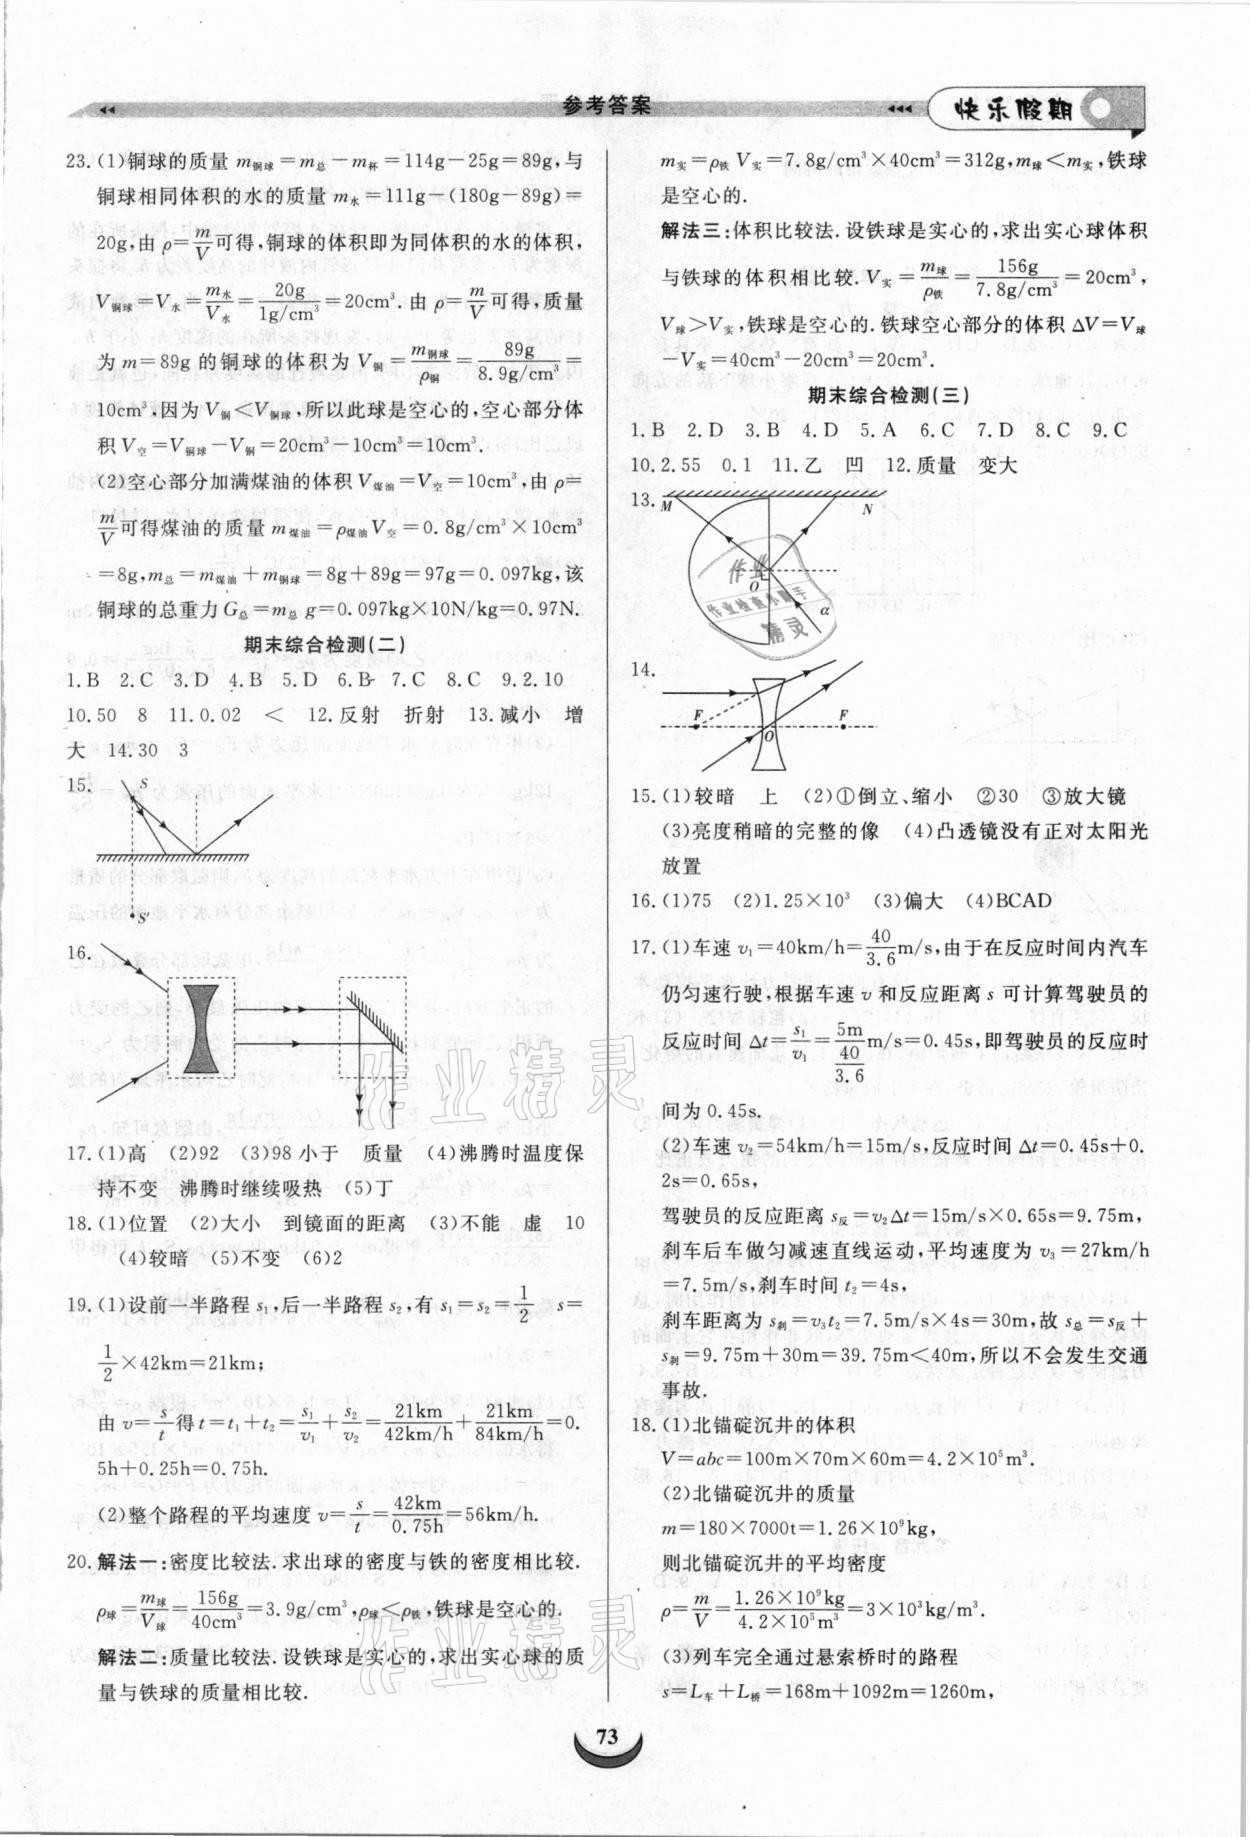 参考答案
快乐假期
23.(1)铜球的质量 m铜球=m总-m杯=114g-25g=89g,与
铜球相同体积的水的质量 m水=111g-(180g-89g)=
20g,由 ρ=m/V可得,铜球的体积即为同体积的水的体积,
V铜球=V水=m水/V水=20g/1g/cm³=20cm³.由 ρ=m/V可得,质量
为 m=89g 的铜球的体积为 V铜=m铜球/ρ铜=89g/8.9g/cm³=
10cm³.因为 V铜<V铜球,所以此球是空心的,空心部分体
积 V空=V铜球-V铜=20cm³-10cm³=10cm³.
(2)空心部分加满煤油的体积 V煤油=V空=10cm³,由 ρ=
m/V可得煤油的质量 m煤油=ρ煤油V空=0.8g/cm³×10cm³
=8g,m总=m煤油+m铜球=8g+89g=97g=0.097kg,该
铜球的总重力 G总=m总g=0.097kg×10N/kg=0.97N.
期末综合检测(二)
1.B 2.C 3.D 4.B 5.D 6.B 7.C 8.C 9.2.10
10.50 8 11.0.02 < 12.反射 折射 13.减小 增
大 14.30 3
15.
S
S′
16.
17.(1)高 (2)92 (3)98 小于 质量 (4)沸腾时温度保
持不变 沸腾时继续吸热 (5)丁
18.(1)位置 (2)大小 到镜面的距离 (3)不能 虚 10
(4)较暗 (5)不变 (6)2
19.(1)设前一半路程 s₁,后一半路程 s₂,有 s₁=s₂=1/2 s=
1/2×42km=21km;
由 v=s/t得 t=t₁+t₂=s₁/v₁+s₂/v₂=21km/42km/h+21km/84km/h=0.
5h+0.25h=0.75h.
(2)整个路程的平均速度 v=s/t=42km/0.75h=56km/h.
20.解法一:密度比较法.求出球的密度与铁的密度相比较.
ρ球=m球/V球=156g/40cm³=3.9g/cm³,ρ球<ρ铁,铁球是空心的.
解法二:质量比较法.设铁球是实心的,求出实心球的质
量与铁球的质量相比较.
m实=ρ铁V实=7.8g/cm³×40cm³=312g,m球<m实,铁球
是空心的.
解法三:体积比较法.设铁球是实心的,求出实心球体积
与铁球的体积相比较.V实=m球/ρ铁=156g/7.8g/cm³=20cm³,
V球>V实,铁球是空心的.铁球空心部分的体积 ΔV=V球
-V实=40cm³-20cm³=20cm³.
期末综合检测(三)
1.B 2.D 3.B 4.D 5.A 6.C 7.D 8.C 9.C
10.2.55 0.1 11.乙 凹 12.质量 变大
13. M N
O
α
作业
作业检查小助手
精灵
14.
F O F
15.(1)较暗 上 (2)①倒立、缩小 ②30 ③放大镜
(3)亮度稍暗的完整的像 (4)凸透镜没有正对太阳光
放置
16.(1)75 (2)1.25×10³ (3)偏大 (4)BCAD
17.(1)车速 v₁=40km/h=40/3.6m/s,由于在反应时间内汽车
仍匀速行驶,根据车速 v 和反应距离 s 可计算驾驶员的
反应时间 Δt=s₁/v₁=5m/(40/3.6)m/s=0.45s,即驾驶员的反应时
间为 0.45s.
(2)车速 v₂=54km/h=15m/s,反应时间 Δt=0.45s+0.
2s=0.65s,
驾驶员的反应距离 s反=v₂Δt=15m/s×0.65s=9.75m,
刹车后车做匀减速直线运动,平均速度为 v₃=27km/h
=7.5m/s,刹车时间 t₂=4s,
刹车距离为 s刹=v₃t₂=7.5m/s×4s=30m,故 s总=s反+
s刹=9.75m+30m=39.75m<40m,所以不会发生交通
事故.
18.(1)北锚碇沉井的体积
V=abc=100m×70m×60m=4.2×10⁵m³.
(2)北锚碇沉井的质量
m=180×7000t=1.26×10⁹kg,
则北锚碇沉井的平均密度
ρ=m/V=1.26×10⁹kg/4.2×10⁵m³=3×10³kg/m³.
(3)列车完全通过悬索桥时的路程
s=L车+L桥=168m+1092m=1260m,
作业精灵
作业精灵
73